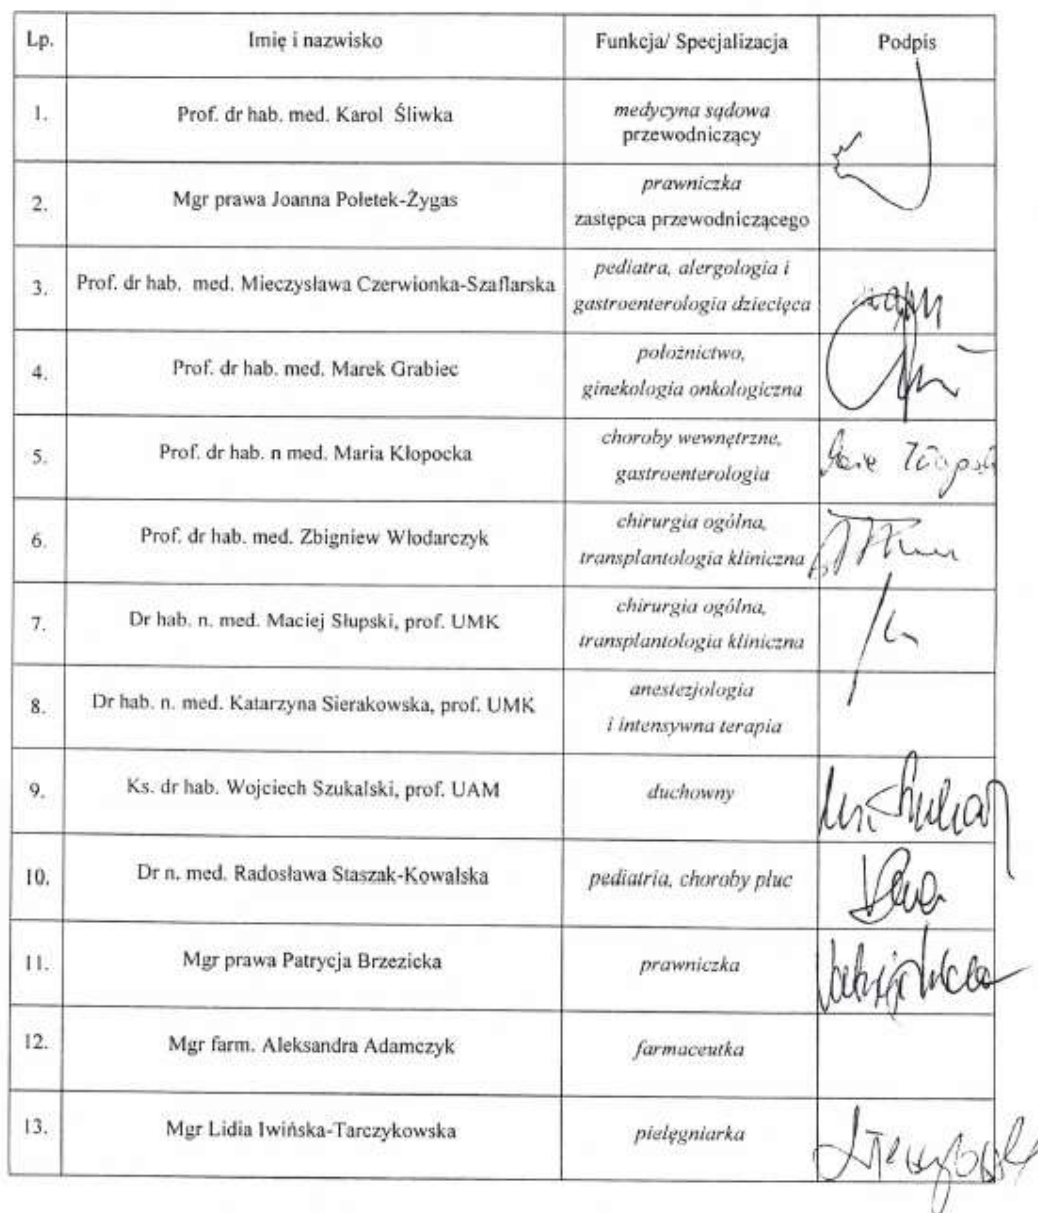 Lp. Imię i nazwisko Funkcja/ Specjalizacja Podpis
1. Prof. dr hab. med. Karol Śliwka medycyna sądowa
przewodniczący
2. Mgr prawa Joanna Połetek-Żygas prawniczka
zastępca przewodniczącego
3. Prof. dr hab. med. Mieczysława Czerwionka-Szaflarska pediatra, alergologia i
gastroenterologia dziecięca
4. Prof. dr hab. med. Marek Grabiec położnictwo,
ginekologia onkologiczna
5. Prof. dr hab. n med. Maria Kłopocka choroby wewnętrzne,
gastroenterologia
6. Prof. dr hab. med. Zbigniew Włodarczyk chirurgia ogólna,
transplantologia kliniczna
7. Dr hab. n. med. Maciej Słupski, prof. UMK chirurgia ogólna,
transplantologia kliniczna
8. Dr hab. n. med. Katarzyna Sierakowska, prof. UMK anestezjologia
i intensywna terapia
9. Ks. dr hab. Wojciech Szukalski, prof. UAM duchowny
10. Dr n. med. Radosława Staszak-Kowalska pediatria, choroby płuc
11. Mgr prawa Patrycja Brzezicka prawniczka
12. Mgr farm. Aleksandra Adamczyk farmaceutka
13. Mgr Lidia Iwińska-Tarczykowska pielęgniarka